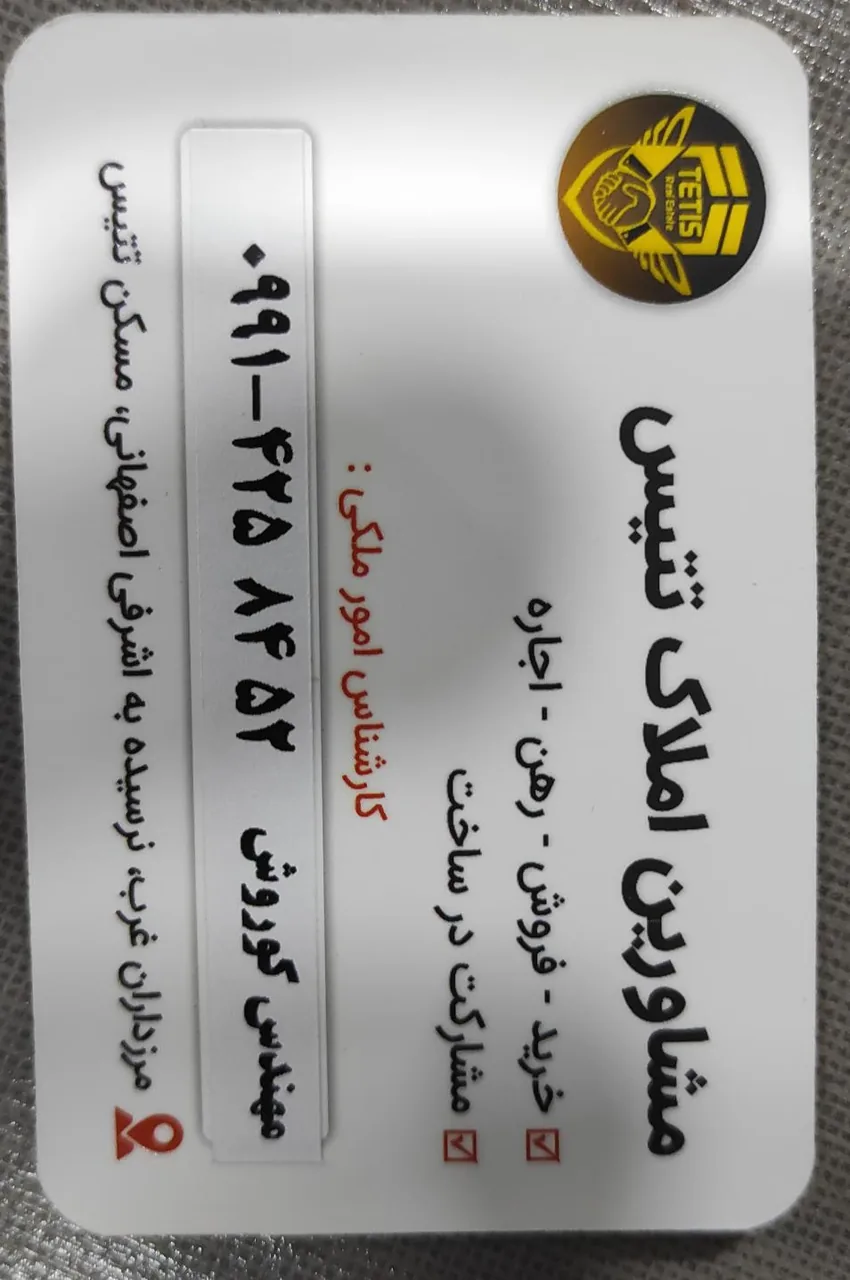 TETIS
Real Estate
مشاورین املاک تتیس
خرید - فروش - رهن - اجاره
مشارکت در ساخت
کارشناس امور ملکی :
مهندس کوروش ۰۹۹۱-۴۲۵ ۸۴ ۵۲
مرزداران غرب، نرسیده به اشرفی اصفهانی، مسکن تتیس